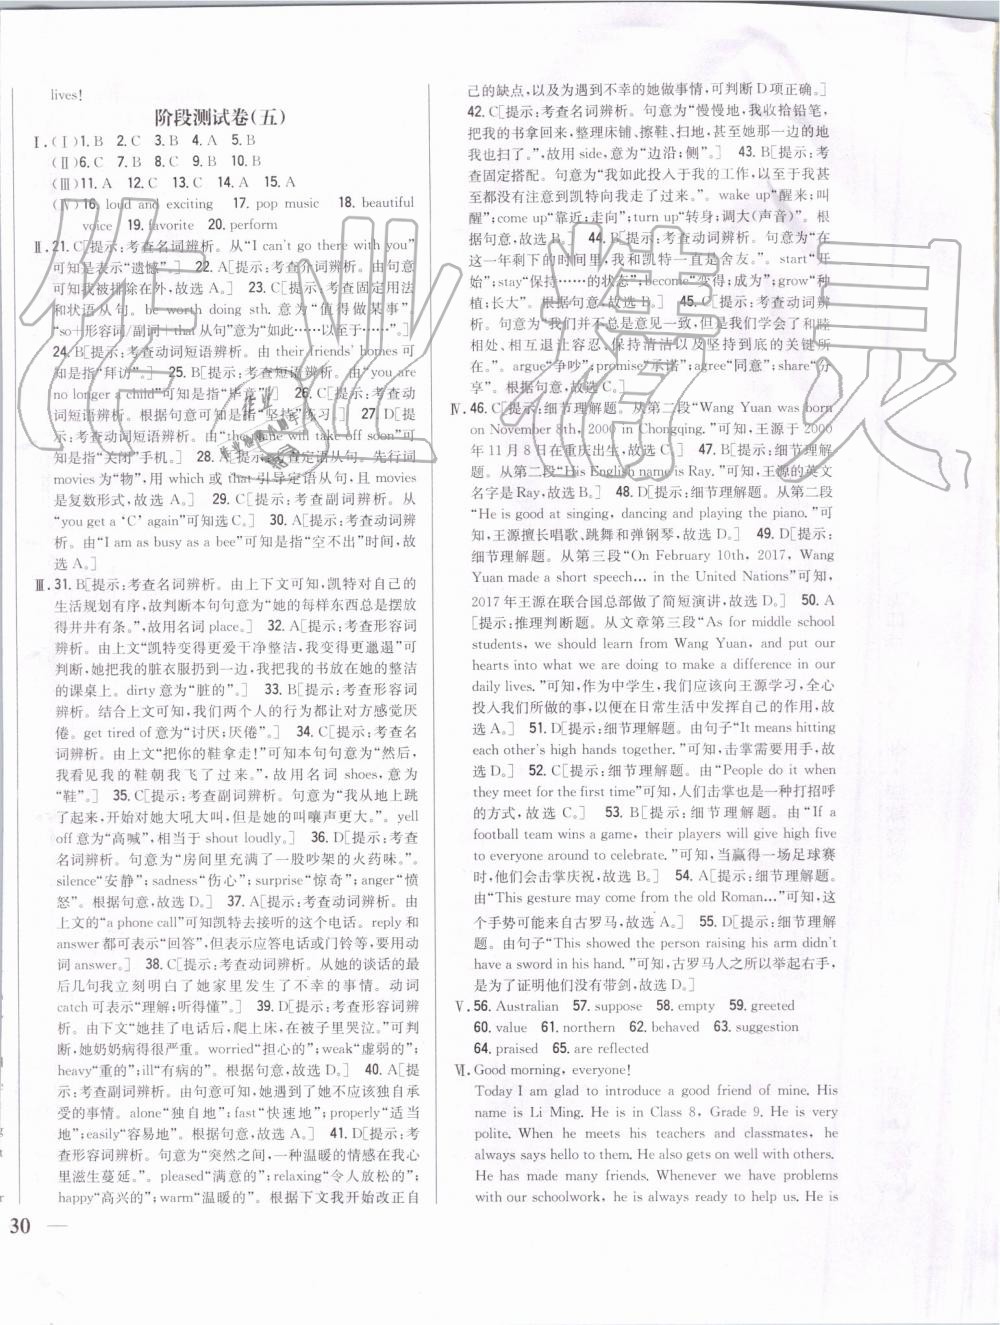 lives!
阶段测试卷(五)
Ⅰ.(Ⅰ)1. B 2. C 3. B 4. A 5. B
(Ⅱ)6. C 7. B 8. C 9. B 10. B
(Ⅲ)11. A 12. C 13. C 14. A 15. A
(Ⅳ)16. loud and exciting 17. pop music 18. beautiful
voice 19. favorite 20. perform
Ⅱ. 21. C[提示:考查名词辨析。从“I can't go there with you”
可知是表示“遗憾”。] 22. A[提示:考查介词辨析。由句意
可知我被排除在外,故选A。] 23. C[提示:考查固定用法
和状语从句。be worth doing sth. 意为“值得做某事”
“so+形容词/副词+that从句”意为“如此……以至于……”。]
24. B[提示:考查动词短语辨析。由 their friends' homes 可
可知是指“拜访”。] 25. C[提示:考查短语辨析。由“you are
no longer a child”可知是指“毕竟”。] 26. C[提示:考查动
词短语辨析。根据句意可知是指“坚持”练习。] 27. D[提
示:考查动词短语辨析。由“the plane will take off soon”可
知是指“关闭”手机。] 28. A[提示:考查定语从句。先行词
movies 为“物”,用 which 或 that 引导定语从句,且 movies
是复数形式,故选A。] 29. C[提示:考查副词辨析。从
“you get a ‘C’ again”可知选C。] 30. A[提示:考查动词辨
析。由“I am as busy as a bee”可知是指“空不出”时间,故
选A。]
Ⅲ. 31. B[提示:考查名词辨析。由上下文可知,凯特对自己的
生活规划有序,故判断本句句意为“她的每样东西总是摆放
得井井有条。”,故用名词 place。] 32. A[提示:考查形容词
辨析。由上文“凯特变得更爱干净整洁,我变得更邋遢”可
判断,她把我的脏衣服扔到一边,我把我的书放在她的整洁
的课桌上。dirty意为“脏的”。] 33. B[提示:考查形容词
辨析。结合上文可知,我们两个人的行为都让对方感觉厌
倦。get tired of意为“讨厌;厌倦”。] 34. C[提示:考查名
词辨析。由上文“把你的鞋拿走!”可知本句句意为“然后,
我看见我的鞋朝我飞了过来。”,故用名词 shoes,意为
“鞋”。] 35. C[提示:考查副词辨析。句意为“我从地上跳
了起来,开始对她大吼大叫,但是她的叫嚷声更大。”。yell
off 意为“高喊”,相当于 shout loudly。] 36. D[提示:考查
名词辨析。句意为“房间里充满了一股吵架的火药味。”。
silence“安静”;sadness“伤心”;surprise“惊奇”;anger“愤
怒”。根据句意,故选D。] 37. A[提示:考查动词辨析。由
上文的“a phone call”可知凯特去接听的这个电话。reply 和
answer 都可表示“回答”,但表示应答电话或门铃等,要用动
词 answer。] 38. C[提示:考查动词辨析。从她的谈话的最
后几句我立刻明白了她家里发生了不幸的事情。动词
catch 可表示“理解;听得懂”。] 39. D[提示:考查形容词辨
析。由下文“她挂了电话后,爬上床,在被子里哭泣。”可判
断,她奶奶病得很严重。worried“担心的”;weak“虚弱的”;
heavy“重的”;ill“有病的”。根据句意,故选D。] 40. A[提
示:考查副词辨析。由句意可知,她遇到了她不能独自承
受的事情。alone“独自地”;fast“快速地”;properly“适当
地”;easily“容易地”。根据句意,故选A。] 41. D[提示:考
查形容词辨析。句意为“突然之间,一种温暖的情感在我心
里滋生蔓延。”。pleased“满意的”;relaxing“令人放松的”;
happy“高兴的”;warm“温暖的”。根据下文我开始改正自
己的缺点,以及为遇到不幸的她做事情,可判断D项正确。]
42. C[提示:考查名词辨析。句意为“慢慢地,我收拾铅笔,
把我的书拿回来,整理床铺、擦鞋、扫地,甚至她那一边的地
我也扫了。”,故用 side,意为“边沿;侧”。] 43. B[提示:考
查固定搭配。句意为“我如此投入于我的工作,以至于我甚
至都没有注意到凯特向我走了过来。”。wake up“醒来;叫
醒”;come up“靠近;走向”;turn up“转身;调大(声音)”。根
据句意,故选B。] 44. B[提示:考查动词辨析。句意为“在
这一年剩下的时间里,我和凯特一直是舍友。”。start“开
始”;stay“保持……的状态”;become“变得;成为”;grow“种
植;长大”。根据句意,故选B。] 45. C[提示:考查动词辨
析。句意为“我们并不总是意见一致,但是我们学会了和睦
相处、相互让容忍、保持清洁以及坚持到底的关键所
在。”。argue“争吵”;promise“承诺”;agree“同意”;share“分
享”。根据句意,故选C。]
Ⅳ. 46. C[提示:细节理解题。从第二段“Wang Yuan was born
on November 8th, 2000 in Chongqing.”可知,王源于2000
年11月8日在重庆出生,故选C。] 47. B[提示:细节理解
题。从第二段“His English name is Ray.”可知,王源的英文
名字是 Ray,故选B。] 48. D[提示:细节理解题。从第二段
“He is good at singing, dancing and playing the piano.”可
知,王源擅长唱歌、跳舞和弹钢琴,故选D。] 49. D[提示:
细节理解题。从第三段“On February 10th, 2017, Wang
Yuan made a short speech... in the United Nations”可知,
2017年王源在联合国总部做了简短演讲,故选D。] 50. A
[提示:推理判断题。从文章第三段“As for middle school
students, we should learn from Wang Yuan, and put our
hearts into what we are doing to make a difference in our
daily lives.”可知,作为中学生,我们应该向王源学习,全心
投入我们所做的事,以便在日常生活中发挥自己的作用,故
选A。] 51. D[提示:细节理解题。由句子“It means hitting
each other's high hands together.”可知,击掌需要用手,故
选D。] 52. C[提示:细节理解题。由“People do it when
they meet for the first time”可知,人们击掌是一种打招呼
的方式,故选C。] 53. B[提示:细节理解题。由“If a
football team wins a game, their players will give high five
to everyone around to celebrate.”可知,当赢得一场足球赛
时,他们会击掌庆祝,故选B。] 54. A[提示:细节理解题。
由“This gesture may come from the old Roman...”可知,这
个手势可能来自古罗马,故选A。] 55. D[提示:细节理解
题。由句子“This showed the person raising his arm didn't
have a sword in his hand.”可知,古罗马人之所以举起右手,
是为了证明他们没有带剑,故选D。]
Ⅴ. 56. Australian 57. suppose 58. empty 59. greeted
60. value 61. northern 62. behaved 63. suggestion
64. praised 65. are reflected
Ⅵ. Good morning, everyone!
Today I am glad to introduce a good friend of mine. His
name is Li Ming. He is in Class 8, Grade 9. He is very
polite. When he meets his teachers and classmates, he
always says hello to them. He also gets on well with others.
He has made many friends. Whenever we have problems
with our schoolwork, he is always ready to help us. He is
30